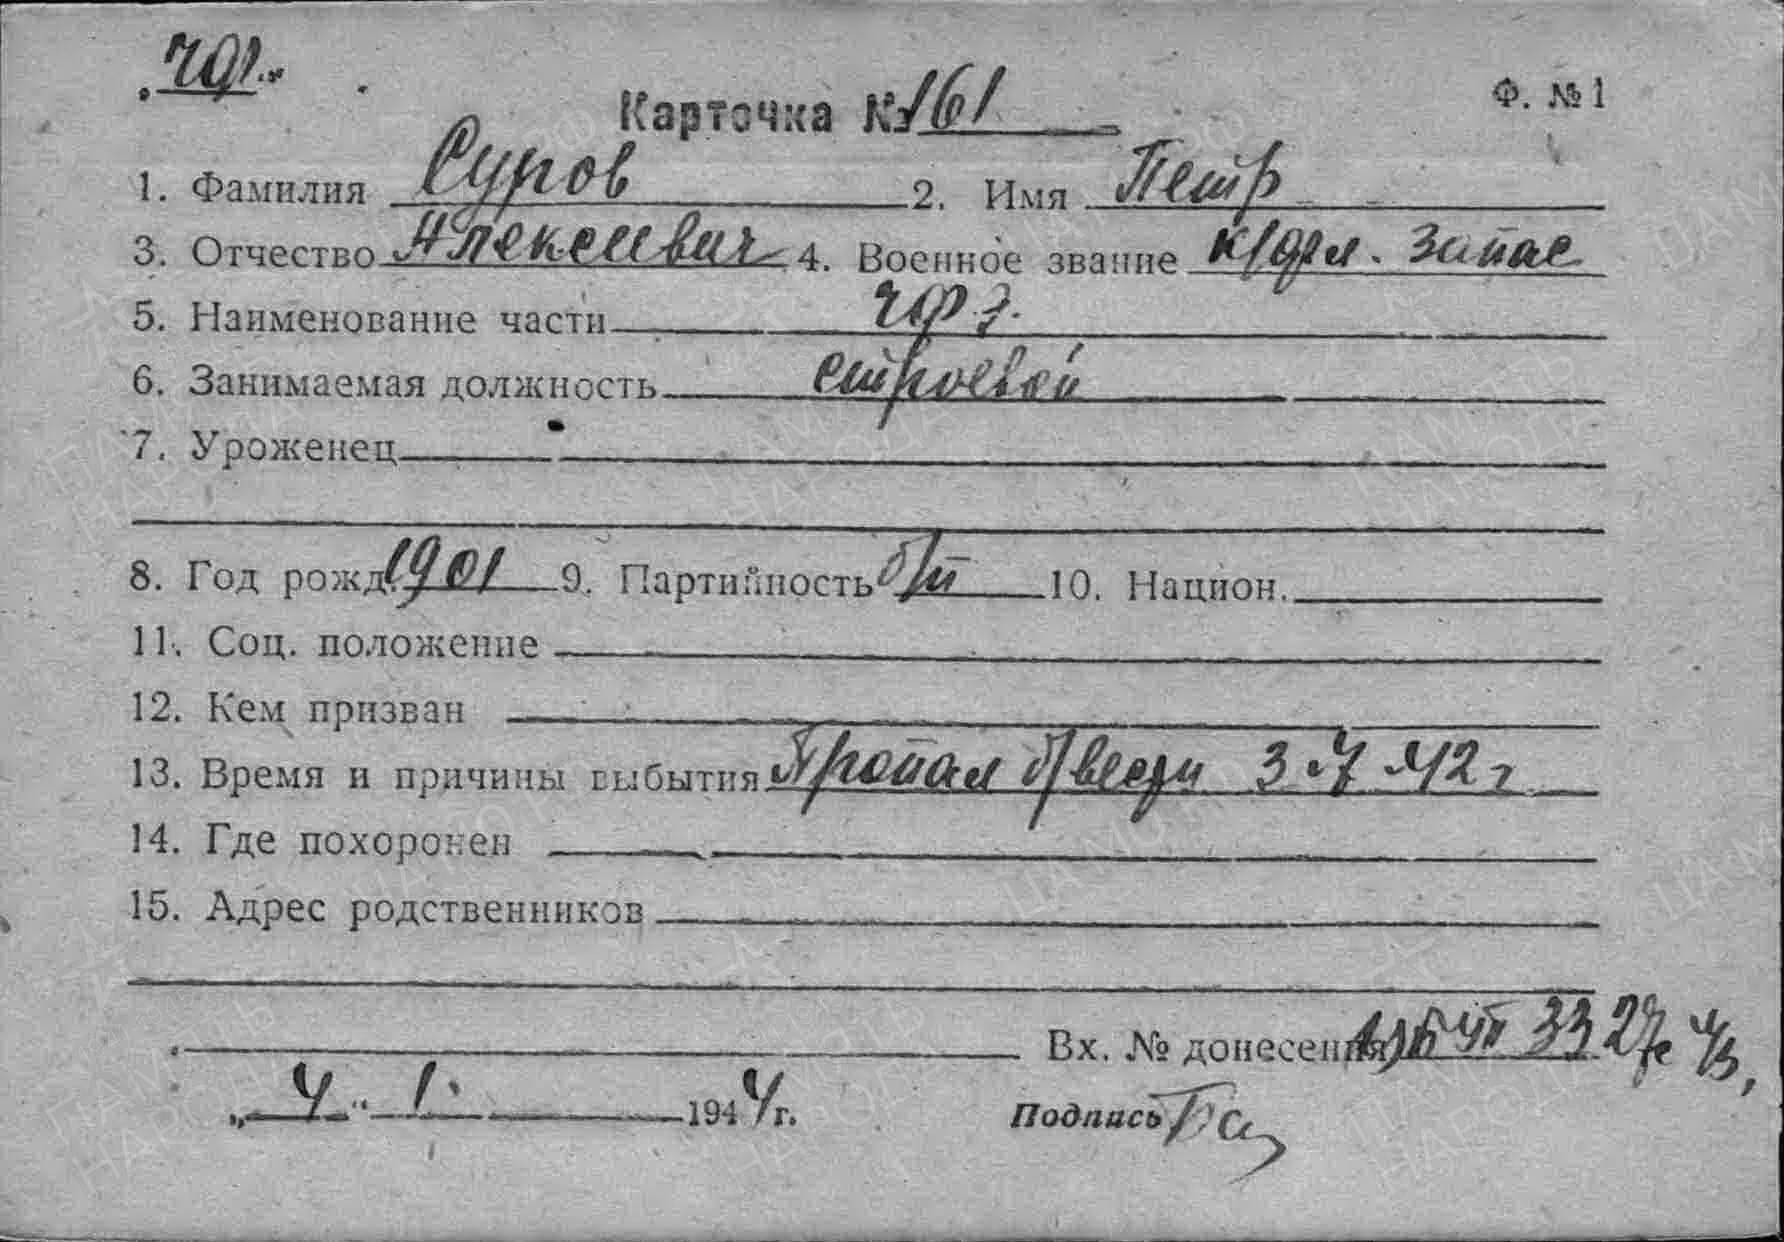 ЧФ
Карточка № 161
Ф. № 1
1. Фамилия Суров 2. Имя Петр
3. Отчество Алексеевич 4. Военное звание к/фл. запас
5. Наименование части ЧФ
6. Занимаемая должность строевой
7. Уроженец
8. Год рожд. 1901 9. Партийность б/п 10. Национ.
11. Соц. положение
12. Кем призван
13. Время и причины выбытия Пропал б/вести 3.7.42 г
14. Где похоронен
15. Адрес родственников
Вх. № донесения 33 27
„4“ 1. 1944 г.
Подпись